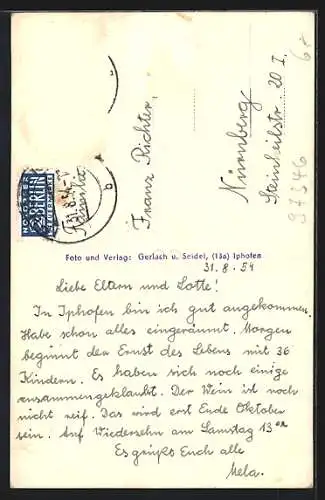 Franz Richter,
Nürnberg
Steinheilstr. 20 I.
68
97346
NOTOPFER
2 BERLIN
STEUERMARKE
31.8.54
b
Foto und Verlag: Gerlach u. Seidel, (13a) Iphofen
31.8.54
Liebe Eltern und Lotte!
In Iphofen bin ich gut angekommen.
Habe schon alles eingeräumt. Morgen
beginnt der Ernst des Lebens mit 36
Kindern. Es haben sich noch einige
zusammengeklaubt. Der Wein ist noch
nicht reif. Das wird erst Ende Oktober
sein. Auf Wiedersehn am Samstag 13
Es grüßt Euch alle
Mela.